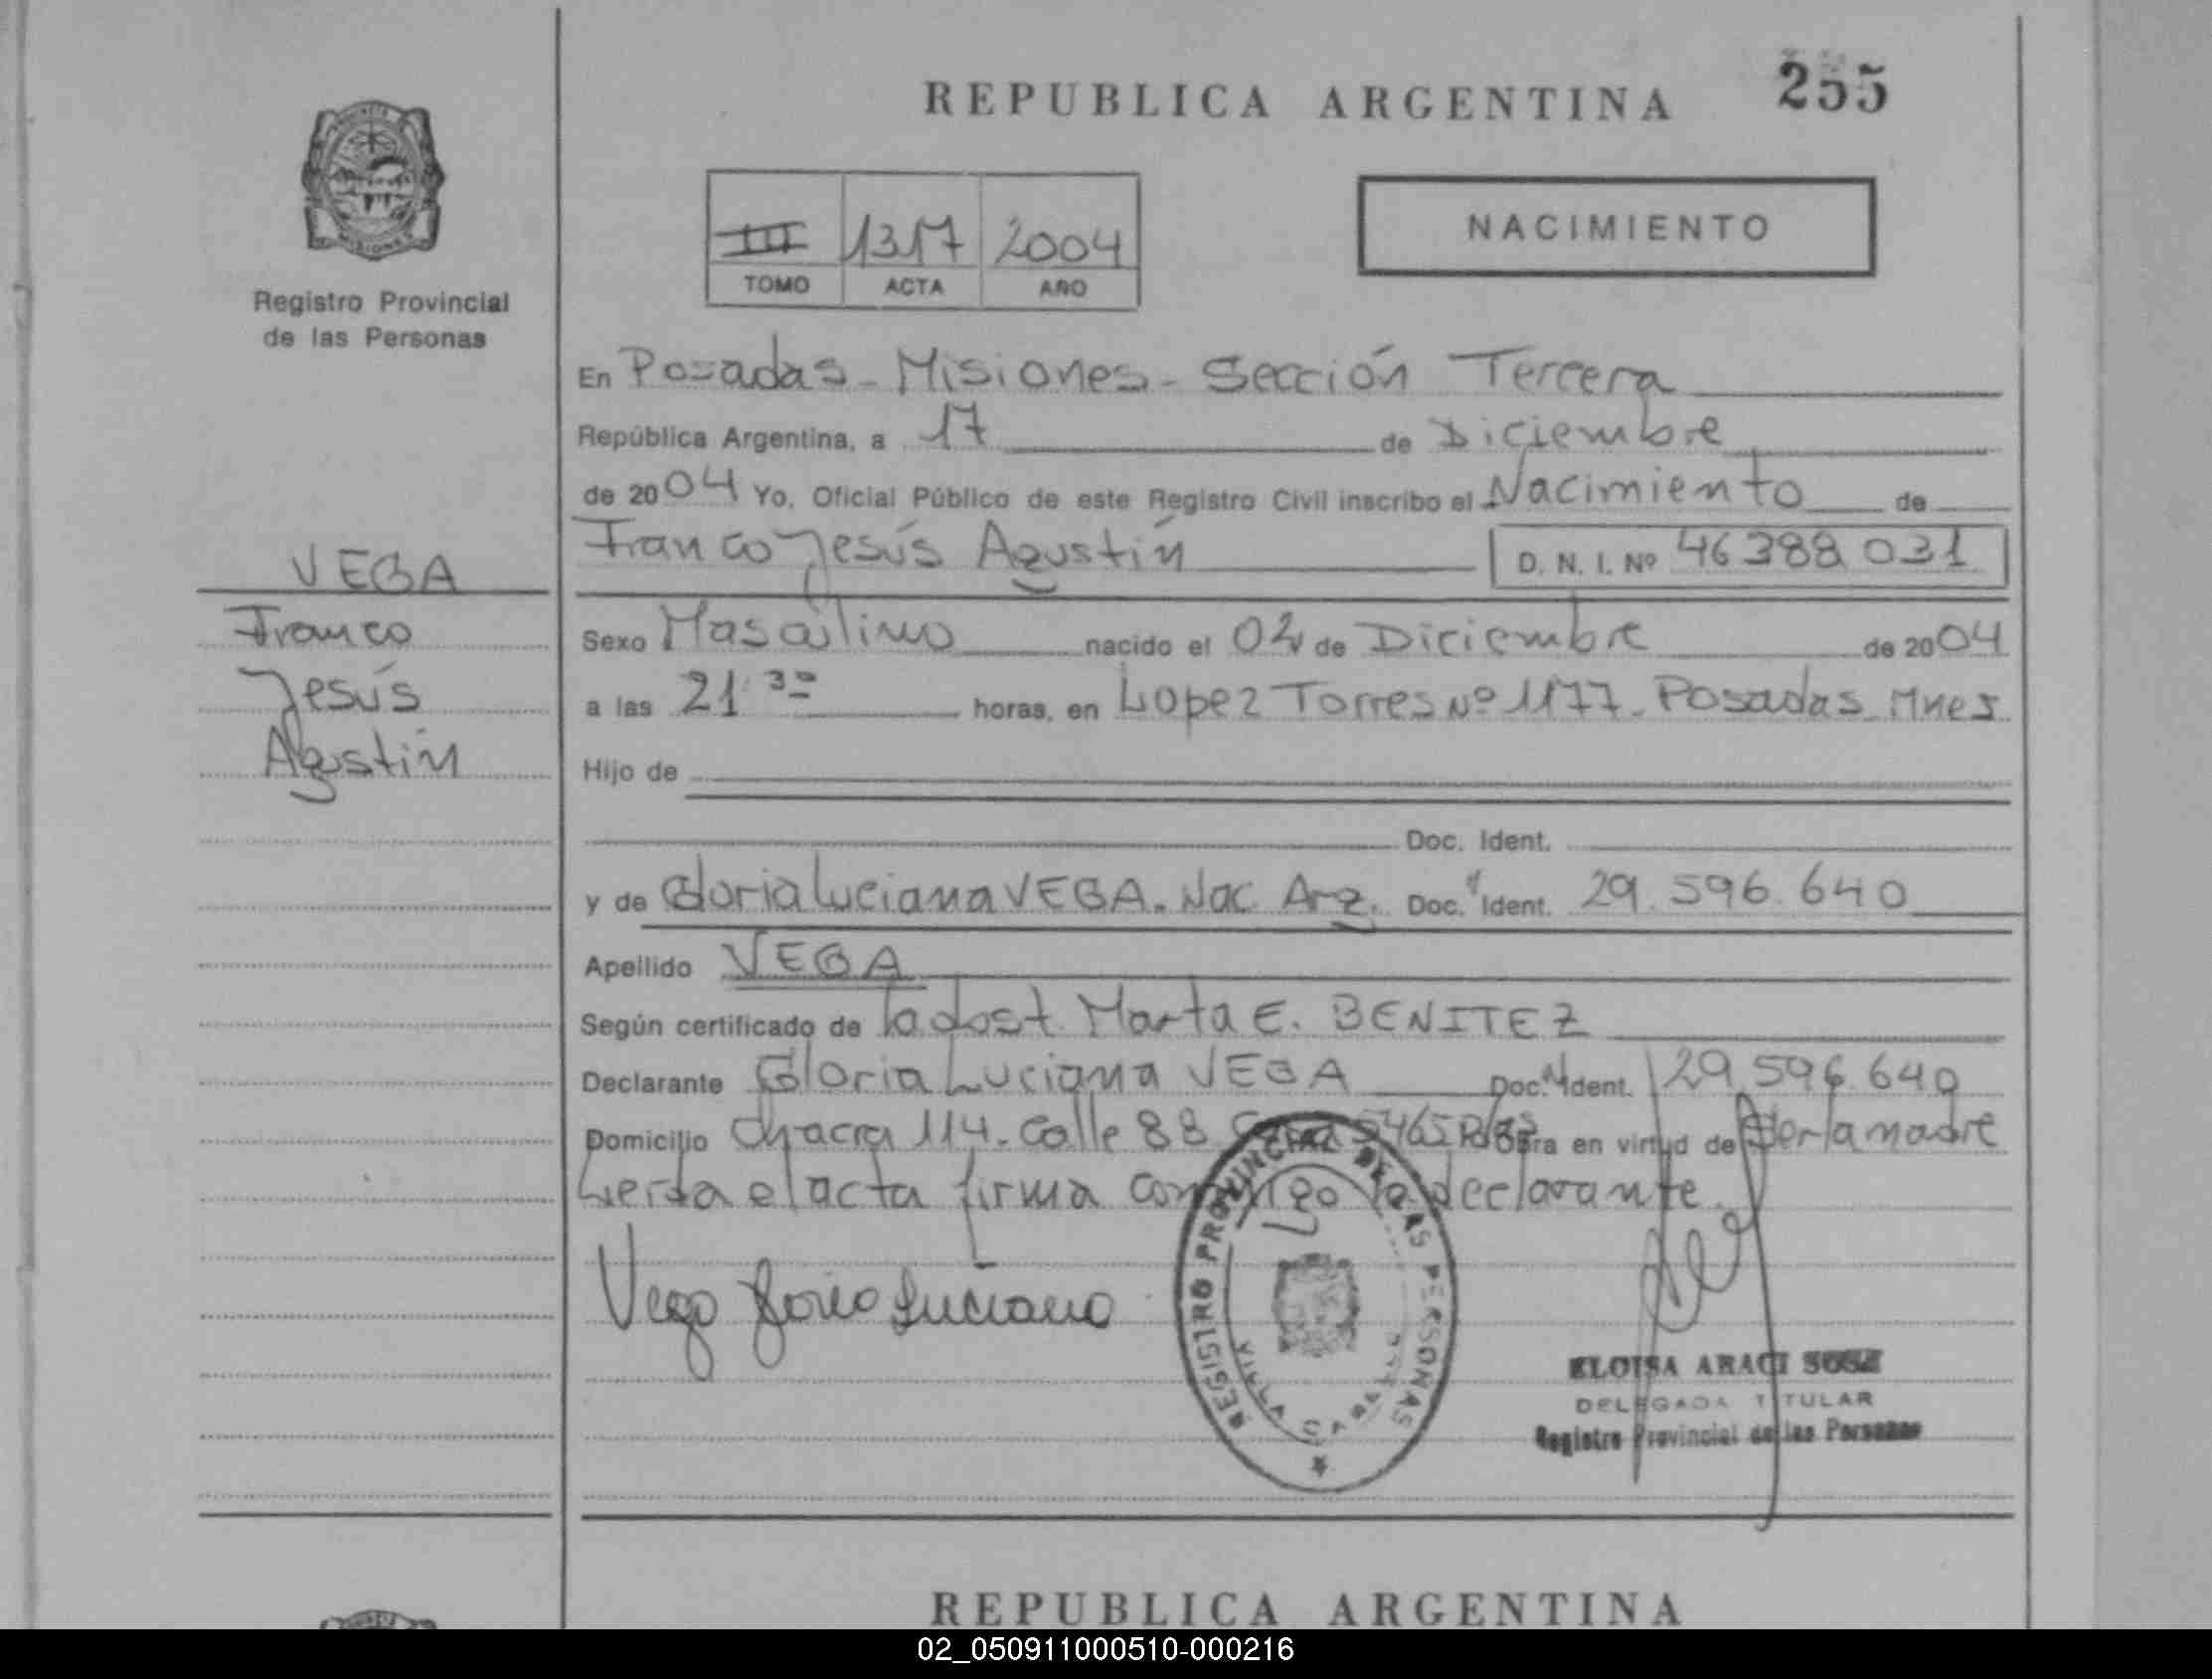 REPUBLICA ARGENTINA 255
Registro Provincial
de las Personas
III 1317 2004
TOMO ACTA AÑO
NACIMIENTO
En Posadas - Misiones - Sección Tercera
República Argentina, a 17 de Diciembre
de 2004 Yo, Oficial Público de este Registro Civil inscribo el Nacimiento de
Franco Jesús Agustín D. N. I. Nº 46388031
VEGA
Franco
Jesús
Agustín
Sexo Masculino nacido el 02 de Diciembre de 2004
a las 21 30 horas, en Lopez Torres Nº 1177 - Posadas Mnes
Hijo de
Doc. Ident.
y de Gloria Luciana VEGA. Nac. Arg. Doc. Ident. 29.596.640
Apellido VEGA
Según certificado de la obst. Marta E. BENITEZ
Declarante Gloria Luciana VEGA Doc. Ident. 29.596.640
Domicilio Chacra 114 - Calle 88 Casa 5465 Pdas Obra en virtud de Ser la madre
Leída el acta firma conmigo la declarante
Vega Gloria Luciana
REGISTRO PROVINCIAL DE LAS PERSONAS
ELOISA ARACI SOSA
DELEGADA TITULAR
Registro Provincial de las Personas
REPUBLICA ARGENTINA
02_050911000510-000216